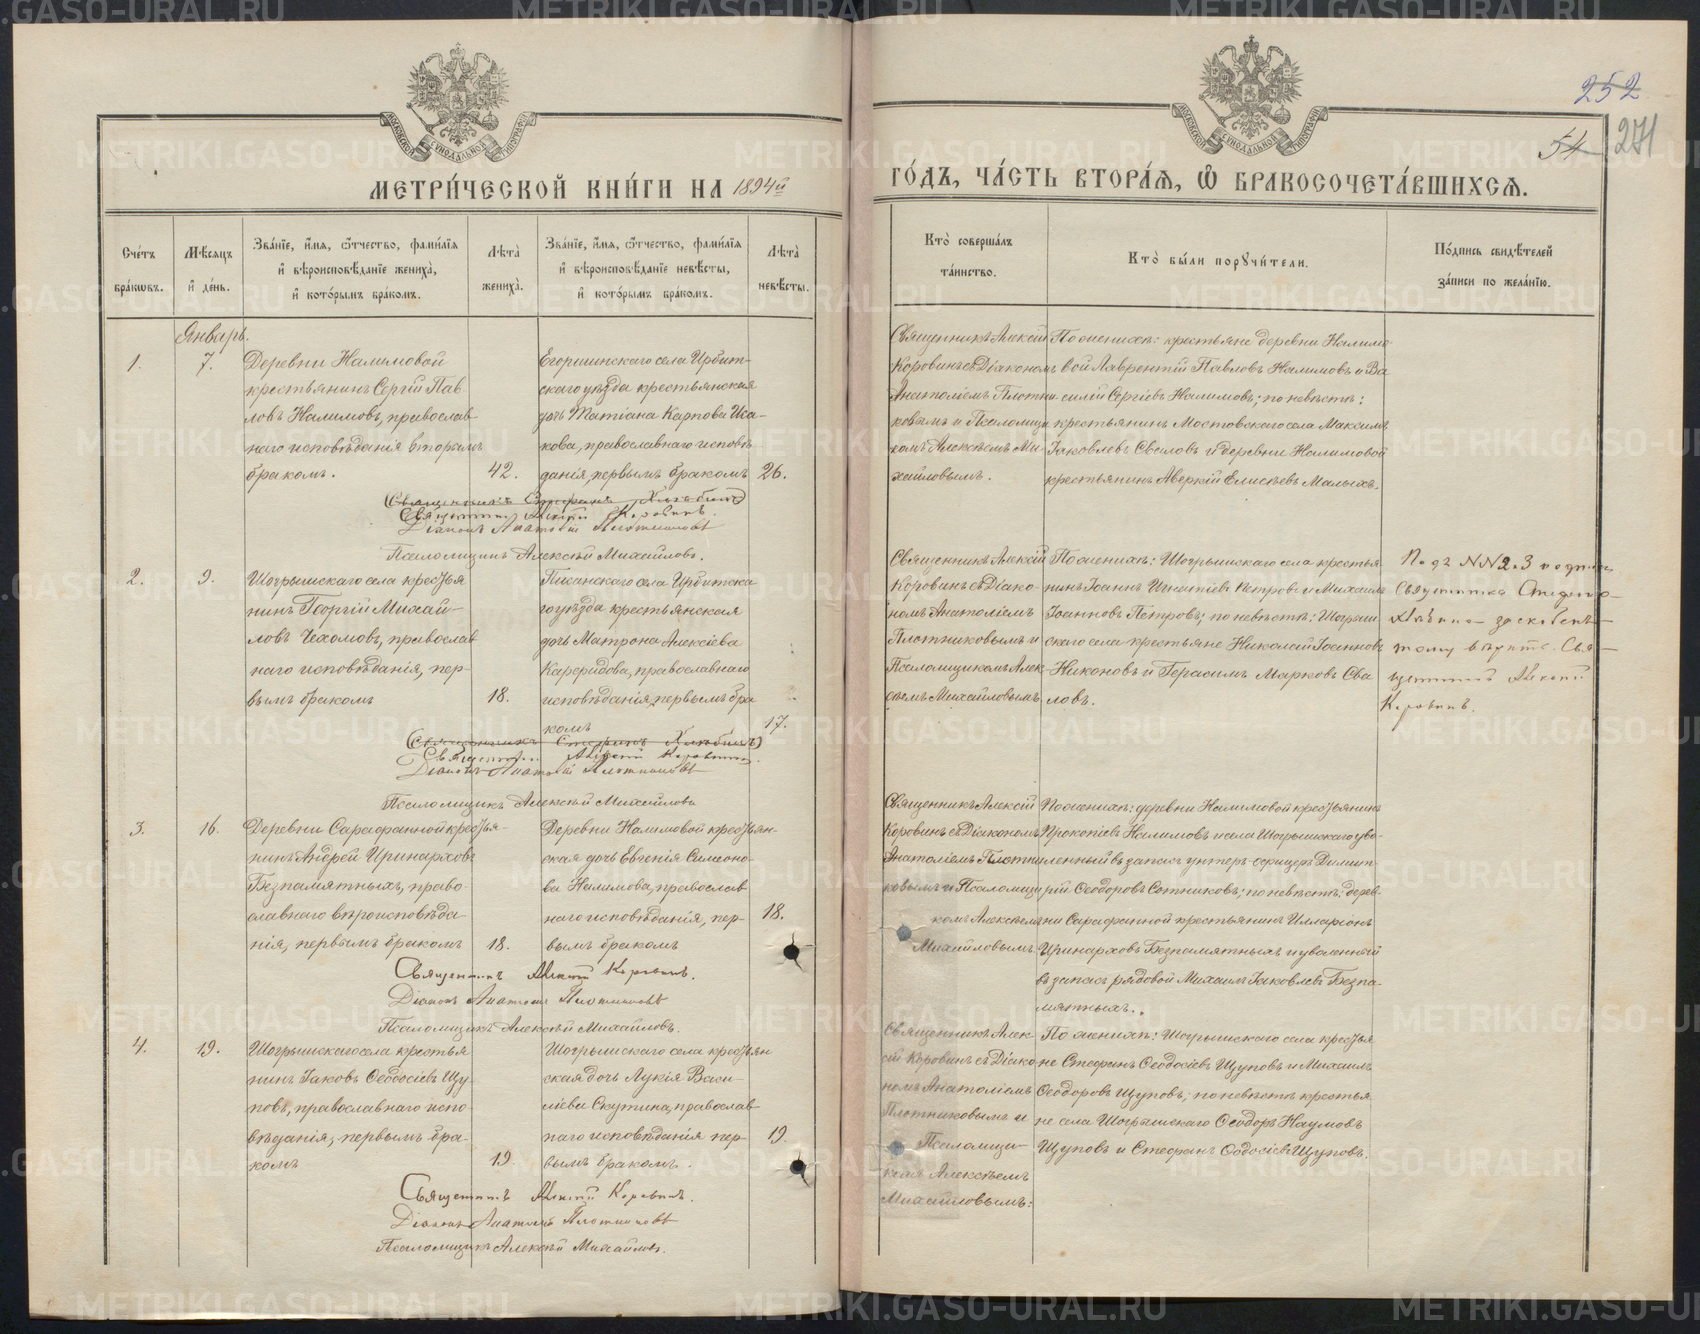 252
54
271
МЕТРИ́ЧЕСКОЙ КНИ́ГИ НА 1894й
ГО́ДЪ, ЧА́СТЬ ВТОРА́Я, Ѿ БРАКОСОЧЕТА́ВШИХСЯ.
Сче́тъ бра́ковъ.
Мѣ́сяцъ и҆ де́нь.
Зва́нїе, и҆́мя, ѻ҆́тчество, фами́лїя
и҆ вѣроисповѣ́данїе жениха̀,
и҆ кото́рымъ бра́комъ.
Лѣ́та жениха̀.
Зва́нїе, и҆́мя, ѻ҆́тчество, фами́лїя
и҆ вѣроисповѣ́данїе невѣ́сты,
и҆ кото́рымъ бра́комъ.
Лѣ́та невѣ́сты.
Кто̀ соверша́лъ
та́инство.
Кто̀ бы́ли порꙋчи́тели.
По́дпись свидѣ́телей
за́писи по жела́нїю.
Январь.
1.
7.
Деревни Налимовой
крестьянинъ Сергій Пав
ловъ Налимовъ, православ
наго исповѣданія вторымъ
бракомъ.
42.
Егоршинскаго села Ирбит-
скаго уѣзда крестьянская
дочь Татіана Карпова Иса-
кова, православнаго исповѣ
данія, первымъ бракомъ
26.
Священникъ Алексій
Коровинъ съ Діакономъ
Анатоліемъ Плотни
ковымъ и Псаломщи
комъ Алексѣемъ Ми-
хайловымъ.
По женихѣ: крестьяне деревни Налимо
вой Лаврентій Павловъ Налимовъ и Ва
силій Сергіевъ Налимовъ; по невѣстѣ:
крестьянинъ Мостовскаго села Максимъ
Іаковлевъ Сваловъ и деревни Налимовой
крестьянинъ Аверкій Елисѣевъ Малыхъ.
(Священникъ Стефанъ Хлѣбинъ)
Священникъ Алексій Коровинъ.
Діаконъ Анатолій Плотниковъ
Псаломщикъ Алексѣй Михайловъ.
2.
9.
Шогрышскаго села крестья
нинъ Георгій Михай-
ловъ Чехомовъ, православ
наго исповѣданія, пер-
вымъ бракомъ
18.
Писанскаго села Ирбитска
го уѣзда крестьянская
дочь Матрона Алексіева
православнаго
исповѣданія, первымъ бра
комъ
17.
Священникъ Алексій
Коровинъ съ Діако-
номъ Анатоліемъ
Плотниковымъ и
Псаломщикомъ Алек-
сѣемъ Михайловымъ
По женихѣ: Шогрышскаго села крестья
нинъ Іоаннъ Игнатіевъ Петровъ и Михаилъ
Іоанновъ Петровъ; по невѣстѣ: Шогрыш
скаго села крестьяне Николай Іоанновъ
Никоновъ и Герасимъ Марковъ Сва
ловъ.
Подъ NN 2 и 3 подпись
Священника Стефана
Хлѣбина зоскоблен-
ному вѣрить. Свя-
щенникъ Алексій
Коровинъ.
(Священникъ Стефанъ Хлѣбинъ)
Священникъ Алексій Коровинъ.
Діаконъ Анатолій Плотниковъ
Псаломщикъ Алексѣй Михайловъ
3.
16.
Деревни Сарафанной крестья-
нинъ Андрей Иринарховъ
Безпамятныхъ, право-
славнаго вѣроисповѣда-
нія, первымъ бракомъ
18.
Деревни Налимовой крестьян-
ская дочь Евгенія Симеоно-
ва Налимова, православ
наго исповѣданія, пер-
вымъ бракомъ
18.
Священникъ Алексій
Коровинъ съ Діакономъ
Анатоліемъ Плотни
ковымъ и Псаломщи
комъ Алексѣемъ
Михайловымъ.
По женихѣ: деревни Налимовой крестьянинъ
Прокопіевъ Налимовъ и села Шогрышскаго уво-
ленный въ запасъ унтеръ-офицеръ Димит-
рій Ѳеодоровъ Сотниковъ; по невѣстѣ: дерев-
ни Сарафанной крестьянинъ Илларіонъ
Иринарховъ Безпамятныхъ и уволенный
въ запасъ рядовой Михаилъ Іаковлевъ Безпа-
мятныхъ.
Священникъ Алексій Коровинъ.
Діаконъ Анатолій Плотниковъ
Псаломщикъ Алексѣй Михайловъ.
4.
19.
Шогрышскаго села крестья
нинъ Іаковъ Ѳеодосіевъ Щу-
повъ, православнаго испо-
вѣданія, первымъ бра-
комъ
19.
Шогрышскаго села крестьян
ская дочь Лукія Васи-
ліева Скутина, православ
наго исповѣданія пер-
вымъ бракомъ.
19.
Священникъ Алек-
сій Коровинъ съ Діако
номъ Анатоліемъ
Плотниковымъ и
Псаломщи-
комъ Алексѣемъ
Михайловымъ:
По женихѣ: Шогрышскаго села крестья
не Стефанъ Ѳеодосіевъ Щуповъ и Михаилъ
Ѳеодоровъ Щуповъ; по невѣстѣ крестья
не села Шогрышскаго Ѳеодоръ Наумовъ
Щуповъ и Стефанъ Ѳеодосіевъ Щуповъ.
Священникъ Алексій Коровинъ.
Діаконъ Анатолій Плотниковъ
Псаломщикъ Алексѣй Михайловъ.
METRIKI.GASO-URAL.RU